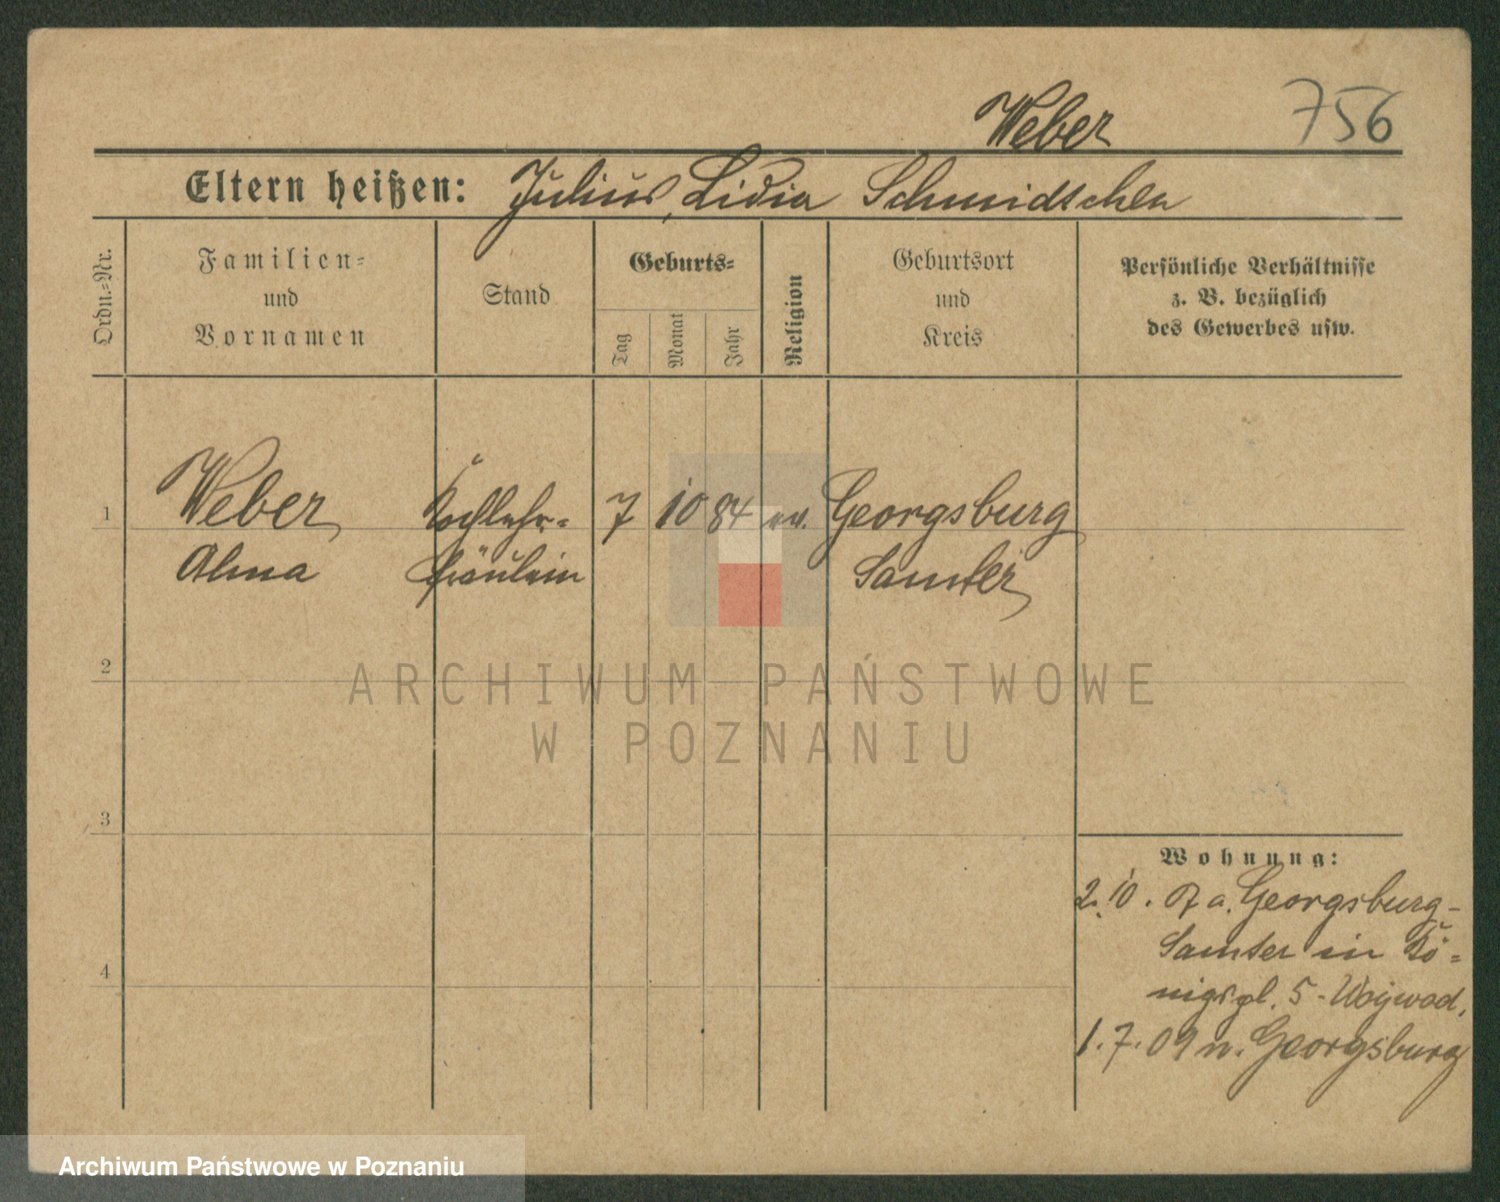 Weber 756
Eltern heißen: Julius, Lidia Schmidtchen
Ordn.-Nr.
Familien-
und
Vornamen
Stand
Geburts-
Tag
Monat
Jahr
Religion
Geburtsort
und
Kreis
Persönliche Verhältnisse
z. B. bezüglich
des Gewerbes usw.
1 Weber Kochlehr- 7 10 84 ev. Georgsburg
Alma fräulein Samter
ARCHIWUM PAŃSTWOWE
W POZNANIU
2
3
4
Wohnung:
2. 10. a. Georgsburg-
Samter in Kö-
nigspl. 5 - Woywod.
1. 7. 09 n. Georgsburg
Archiwum Państwowe w Poznaniu